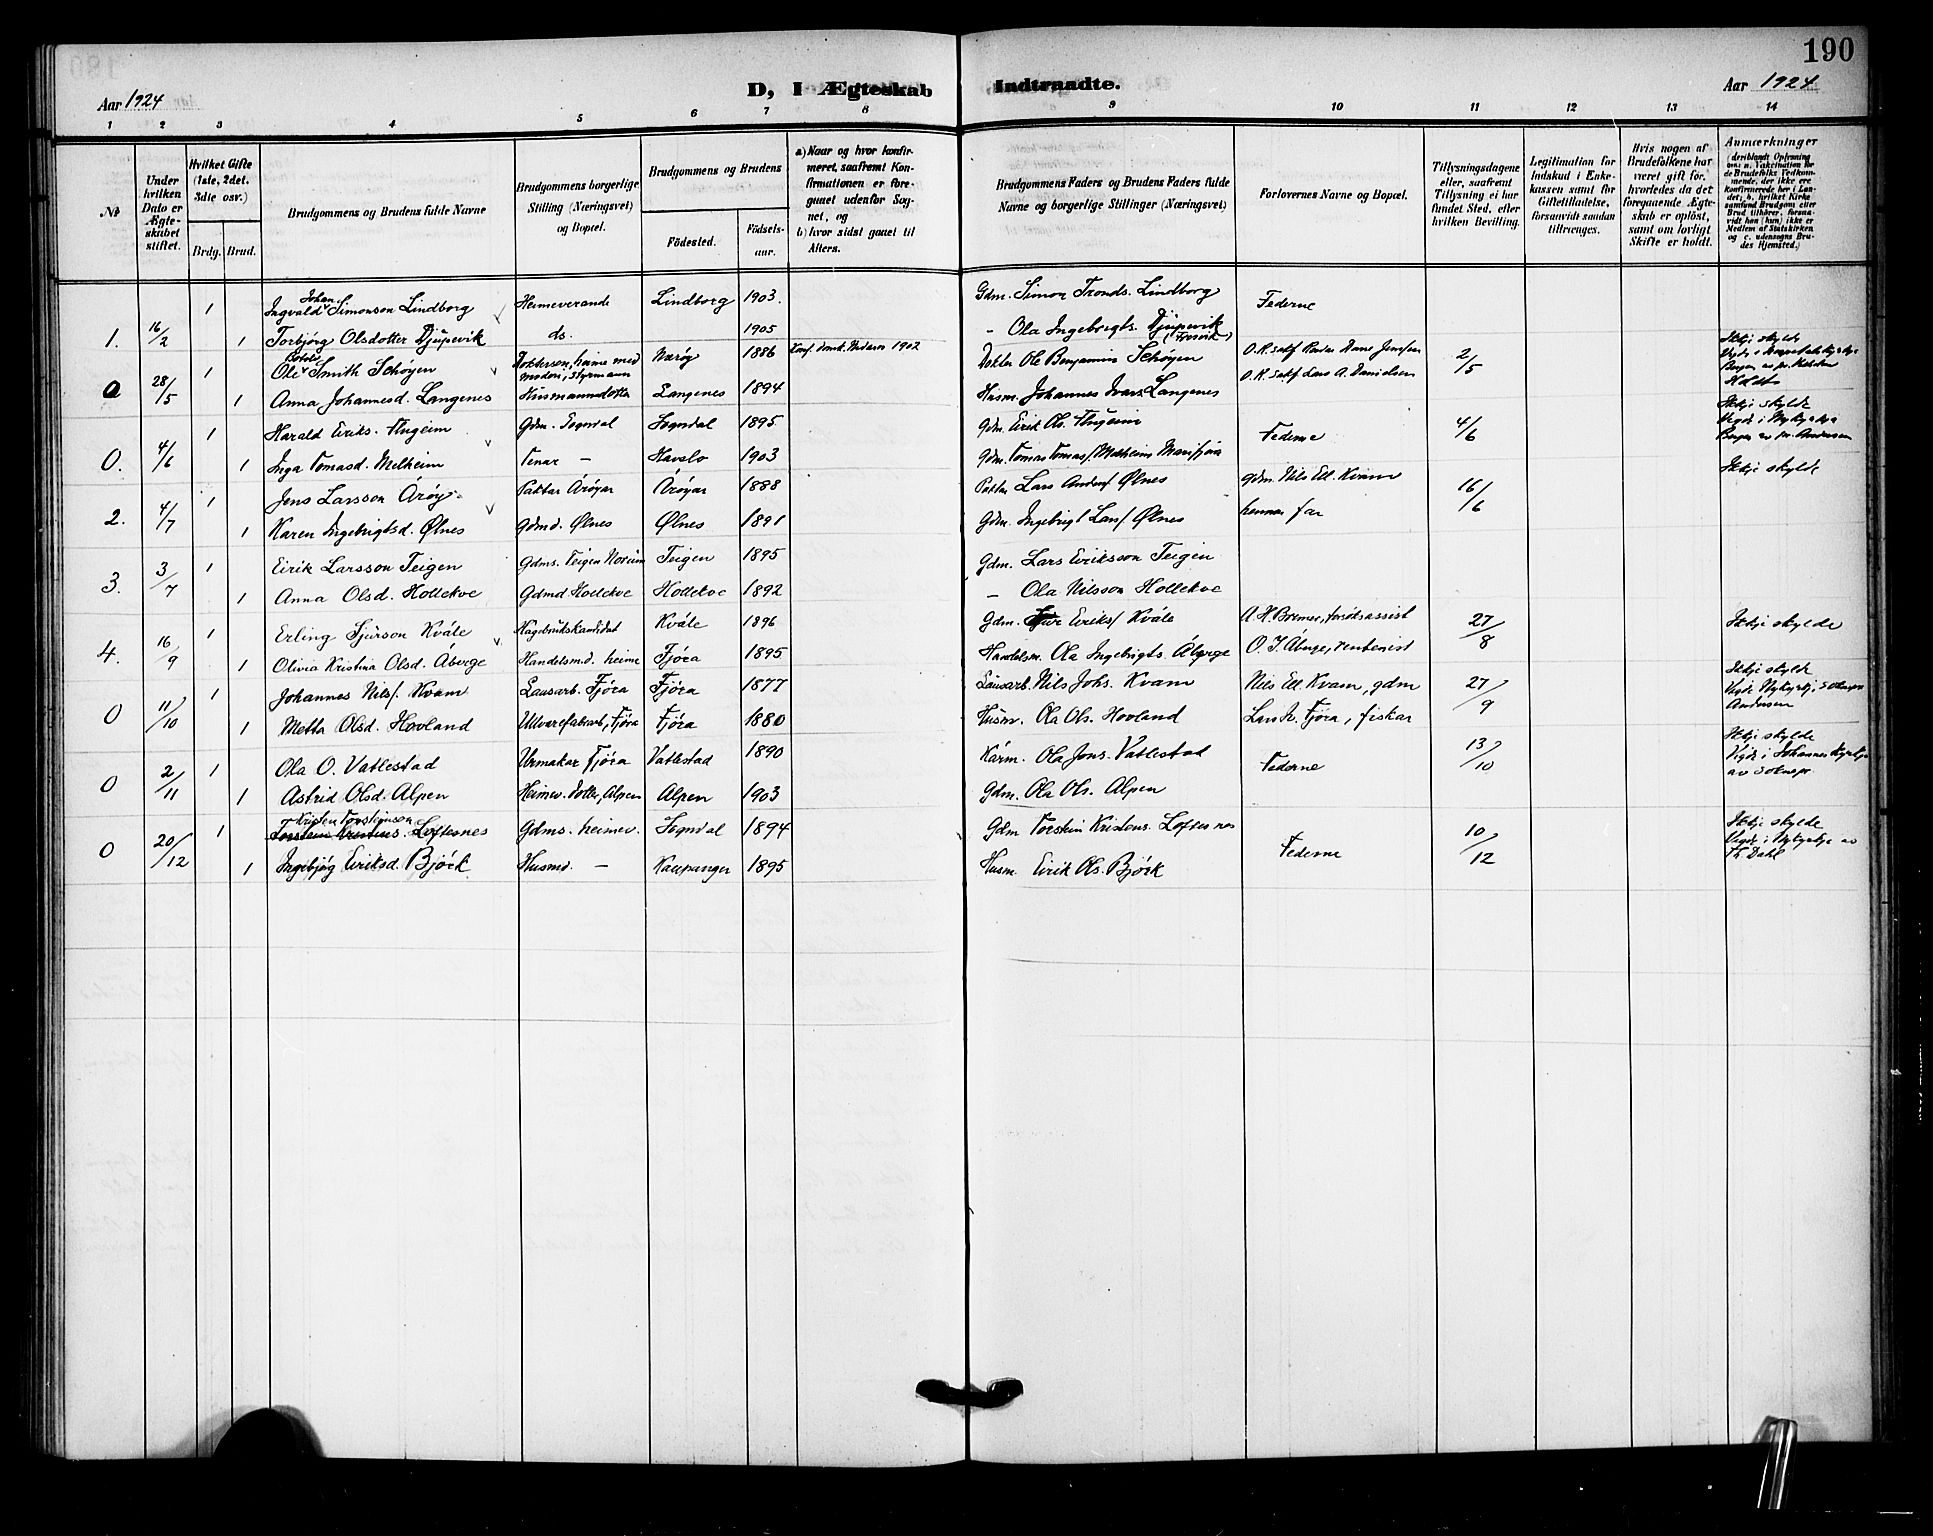 190
Aar 1924
D, I Ægteskab Indtraadte.
Aar 1924
1 2 3 4 5 6 7 8 9 10 11 12 13 14
№
Under hvilken Dato er Ægteskabet stiftet.
Hvilket Gifte (1ste, 2det, 3die osv.)
Brdg. Brud.
Brudgommens og Brudens fulde Navne
Brudgommens borgerlige Stilling (Næringsvei) og Bopæl.
Brudgommens og Brudens
Födested. Födselsaar.
a) Naar og hvor konfirmeret, saafremt Konfirmationen er foregaaet udenfor Sognet, og
b) hvor sidst gaaet til Alters.
Brudgommens Faders og Brudens Faders fulde Navne og borgerlige Stillinger (Næringsvei)
Forlovernes Navne og Bopæl.
Tillysningsdagene eller, saafremt Tillysning ei har fundet Sted, efter hvilken Bevilling.
Legitimation for Indskud i Enkekassen samt for Giftetilladelse, forsaavidt saadan tiltrænges.
Hvis nogen af Brudefolkene har været gift för, hvorledes da det foregaaende Ægteskab er oplöst, samt om lovligt Skifte er holdt.
Anmærkninger
1. 16/2 1 Ingvald Johan Simonson Lindborg Heimeverande Lindborg 1903. Gdm. Simon Tronds. Lindborg Federne
1 Torbjörg Olsdotter Djupevik ds. 1905 – Ola Ingebrigts. Djupevik
0 28/5 1 Ole Smith Schöyen Doktersson, heime med moderi, styrmann Næröy 1886 1902 Dokter Ole Benjamin Schöyen 2/5 Ikkje skylde
1 Anna Johannesd. Langenes Husmannsdotter Langenes 1894 Husm. Johannes Ivars. Langenes O. R. sakf. Lars A. Danielsen
0. 4/6 1 Harald Eiriks. Gdm. Sogndal Sogndal 1895 Gdm. Eirik Ols. Federne 4/6 Ikkje skylde
1 Inga Tomasd. Melheim Tenar – Havslo 1903 Gdm. Tomas Tomas/ Melheim Marifjöra
2. 4/7 1 Jens Larsson Åröy Paktar Åröyar Åröyar 1888 Paktar Lars Anders/ Ølnes gdm. Nils Ell. Kvam 16/6 Ikkje skylde
1 Karen Ingebrigtsd. Ølnes Gdmd. Ølnes Ølnes 1891 Gdm. Ingebrigt Lars/ Ølnes hennar far
3. 3/7 1 Eirik Larsson Teigen Gdms. Teigen Norum Teigen 1895 Gdm. Lars Eiriksson Teigen
1 Anna Olsd. Hollekve Gdmd Hollekve Hollekve 1892 – Ola Nilsson Hollekve
4. 16/9 1 Erling Sjurson Kvåle Hagebrukskandidat Kvåle 1896 Gdm. Eiriks/ Kvåle A. H. Bremer, forsöksassist 27/8 Ikkje skylde
1 Olivia Kristina Olsd. Åberge Handelsmd. heime Fjöra 1895 Handelsm. Ola Ingebrigts. Åberge O. I. Åberge, rentenist
0 11/10 1 Johannes Nils/. Kvam Lausarb. Fjöra Fjöra 1877 Lausarb. Nils Johs. Kvam Nils Ell. Kvam, gdm 27/9 Ikkje skylde
1 Metta Olsd. Hovland Ullvarefabrarb., Fjöra Fjöra 1880 Husm. Ola Ols. Hovland Lars Fjöra, fiskar Andersen
0 2/11 1 Ola O. Vatlestad Urmakar Fjöra Vatlestad 1890 Kårm. Ola Jons. Vatlestad Federne 13/10 Ikkje skylde
1 Astrid Olsd. Alpen Heimev. dotter, Alpen Alpen 1903 Gdm. Ola Ols. Alpen
0 20/12 1 Kristen Torsteinson Loftesnes Gdms. heimev. Sogndal 1894 Gdm Torstein Kristens. Loftesnes Federne 10/12 Ikkje skylde
1 Ingebjög Eiriksd. Björk Husmd. – Kaupanger 1895 Husm. Eirik Ols. Björk Th. Dahl